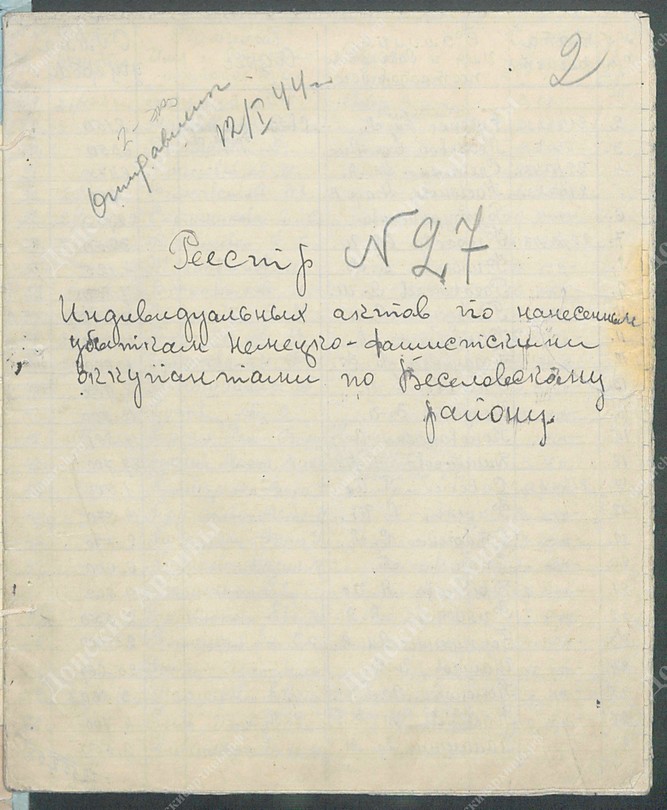 2
Отправлены
12/I 44 г.
Реестр № 27
Индивидуальных актов по нанесенным
убыткам немецко-фашистскими
оккупантами по Веселовскому
району.